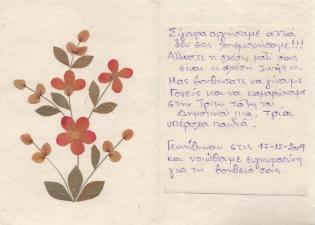 Σίγουρα αργήσαμε αλλά
δεν σας ξεχνουσαμε!!!
Άλλωστε η σχέση μαζί σας
είναι << σχέση Ζωής>>
Μας βοηθήσατε να γίνουμε
Γονείς και να καμαρώνουμε
στην Τρίτη τάξη του
Δημοτικού πια, τρία
υπέροχα παιδιά.
Γεννήθηκαν στις 17-12-2009
και νοιώθουμε ευγνωμοσύνη
για τη βοήθειά σας.